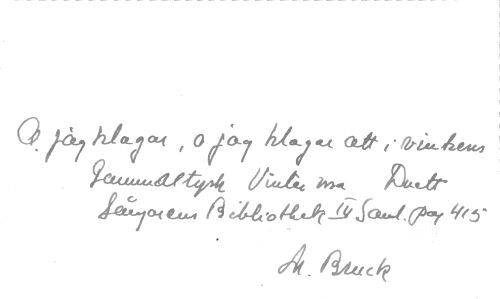 O. jag klagar, o jag klagar att i vinterns
Gammaltysk Vintervisa Duett
Sångarens Bibliothek IV Saml. pag 415
M. Bruck